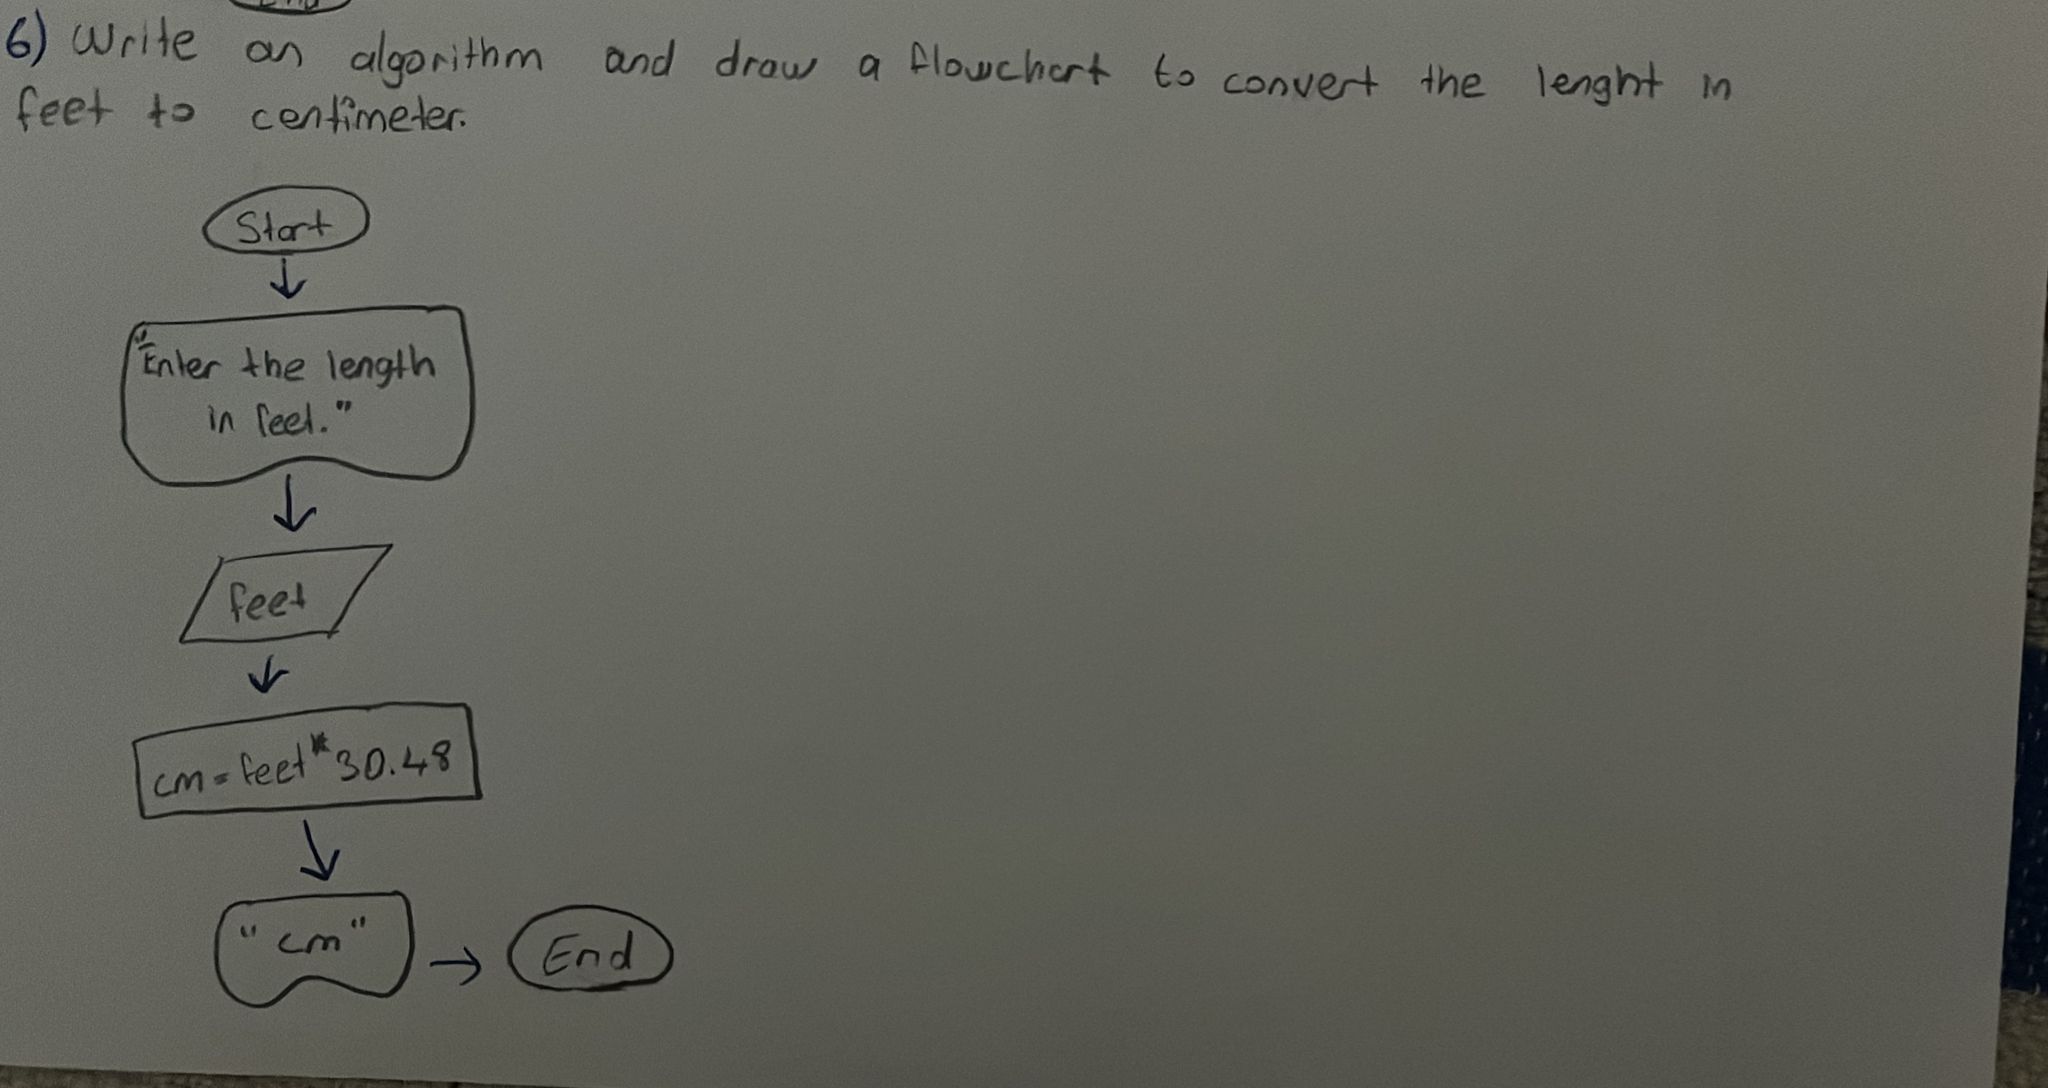 6) Write an algorithm and draw a flowchart to convert the lenght in
feet to centimeter.
Start
"Enter the length
in feet."
feet
cm = feet * 30.48
"cm"
End